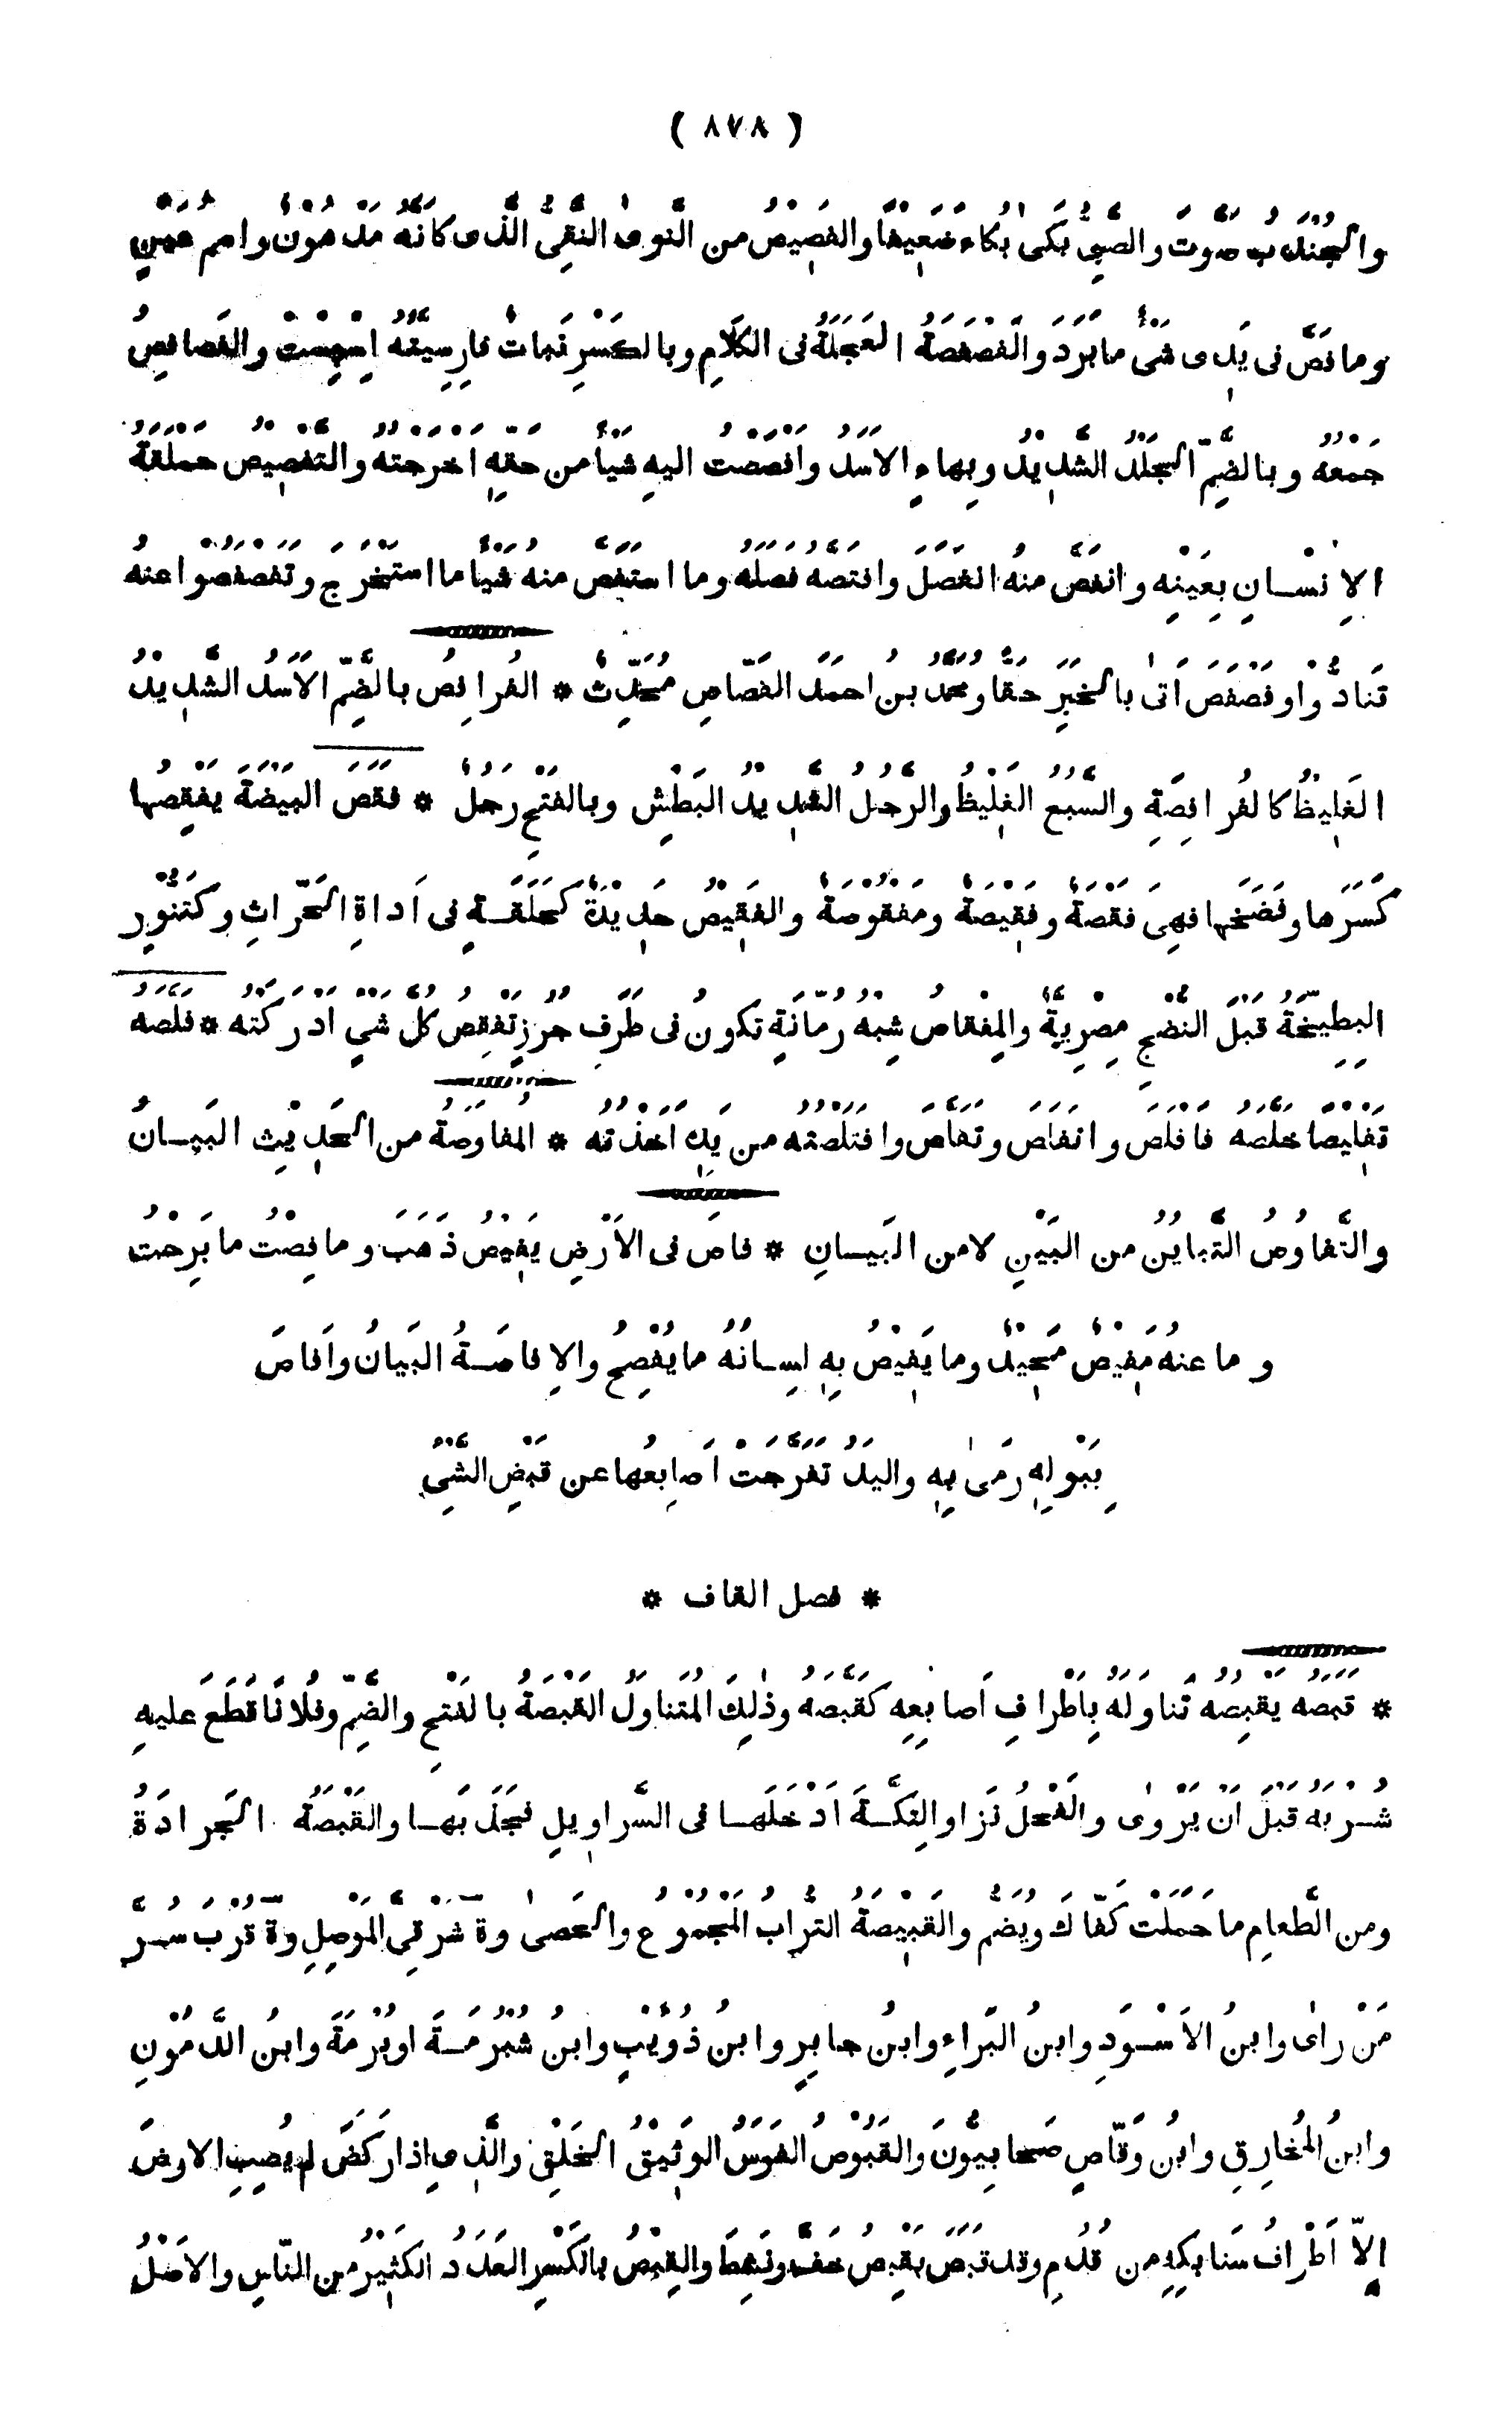 ( ٨٧٨ )
والجُنْدَبُ صَوَّتَ والصَّبِيُّ بَكَى بُكاءً ضَعِيْفًا والفَصِيْصُ من النَّوى النَّقِيُّ الَّذى كَأنَّهُ مَدْهُوْنٌ واسم عَيْنٍ
وما فَصَّ فى يَدِى شَىْءٌ ما بَرَدَ والفَصْفَصَةُ العَجَلَةُ فى الكَلَامِ وبالكَسْرِ نَباتٌ فارِسِيَّتُهُ اِسْپِسْتْ والفُصافِصُ
جَمْعُهُ وبالضَّمِّ الجَلْدُ الشَّدِيْدُ وبِهاءٍ الاَسَدُ وافْصَصْتُ اليهِ شَيْأً من حَقِّهِ اَخْرَجْتُهُ والتَّفْصِيْصُ حَمْلَقَةُ
الاِنْسانِ بِعَيْنِهِ وانفَصَّ منهُ انفَصَلَ وافْتَصَّهُ فَصَلَهُ وما استَفَصَّ منه شَيْأً ما استَخْرَجَ وتَفَصْفَصُوا عنهُ
تَنادُّوا وفَصْفَصَ اَتى بالخَبَرِ حَقًّا ومُحَمَّدُ بنُ احمَدَ الفَصّاصِ مُحَدِّثٌ * الفُرافِصُ بالضَّمِّ الاَسَدُ الشَّدِيْدُ
الغَلِيْظُ كالفُرافِصَةِ والسَّبُعُ الغَلِيْظُ والرَّجُلُ الشَّدِيْدُ البَطْشِ وبالفَتْحِ رَجُلٌ * فَقَصَ البَيْضَةَ يَفْقِصُها
كَسَرَها وفَضَخَها فهِىَ فَقْصَةٌ وفَقِيْصَةٌ ومَفْقُوْصَةٌ والفَقِيْصُ حَدِيْدَةٌ كَحَلَقَةٍ فى اَداةِ الحَرّاثِ وكَتَنُّوْرٍ
البِطِّيخَةُ قَبْلَ النُّضْجِ مِصْرِيَّةٌ والمِفْقاصُ شِبْهُ رُمّانَةٍ تكونُ فى طَرَفِ جُرْزٍ تَفْقِصُ كُلَّ شَىْءٍ اَدْرَكَتْهُ * فَلَّصَهُ
تَفْلِيْصًا خَلَّصَهُ فَاَفْلَصَ وانفَلَصَ وتَفَلَّصَ وافْتَلَصْتُهُ من يَدِهِ اَخَذْتُهُ * المُفاوَصَةُ من الحَدِيْثِ البَيانُ
والتَّفاوُصُ التَّبايُنُ من البَيْنِ لا من البَيانِ * فاصَ فى الاَرْضِ يَفِيْصُ ذَهَبَ وما فِصْتُ ما بَرِحْتُ
وما عنهُ مَفِيْصٌ مَحِيْدٌ وما يَفِيْصُ بِهِ لِسانُهُ ما يُفْصِحُ والاِفاصَةُ البَيانُ واَفاصَ
بِبَوْلِهِ رَمى بِهِ واليَدُ تَفَرَّجَتْ اَصابِعُها عن قَبْضِ الشَّىْءِ
* فصل القاف *
* قَبَصَهُ يَقْبِصُهُ تَناوَلَهُ بِاَطْرافِ اَصابِعِهِ كَقَبَّصَهُ وذٰلِكَ المُتَناوَلُ القَبْصَةُ بالفَتْحِ والضَّمِّ وفُلانًا قَطَعَ عليهِ
شُرْبَهُ قَبْلَ اَنْ يَرْوٰى والفَحْلُ نَزا والتِكَّةَ اَدْخَلَها فى السَّراوِيلِ فجَذَبَها والقَبْصَةُ الجَرادَةُ
ومن الطَّعامِ ما حَمَلَتْ كَفّاكَ ويُضَمُّ والقَبِيصَةُ التُّرابُ المَجْمُوْعُ والحَصى وة شَرْقِىَّ المَوْصِلِ وة قُرْبَ سُرَّ
مَنْ رَاٰى وابنُ الاَسْوَدِ وابنُ البَراءِ وابنُ جابِرٍ وابنُ ذُؤَيْبٍ وابنُ شُبْرُمَةَ او بُرْمَةَ وابنُ الدَّمُوْنِ
وابنُ المُخارِقِ وابنُ وَقّاصٍ صَحابِيُّونَ والقَبُوْصُ الفَرَسُ الوَثِيْقُ الخَلْقِ والَّذِى اِذا رَكَضَ لم يُصِبِ الارضَ
اِلّا اَطْرافُ سَنابِكِهِ من قُدُمٍ وقد قَبَصَ يَقْبِصُ خَفَّ ونَشِطَ والقِبْصُ بالكَسْرِ العَدَدُ الكَثِيْرُ من النّاسِ والاَصْلُ